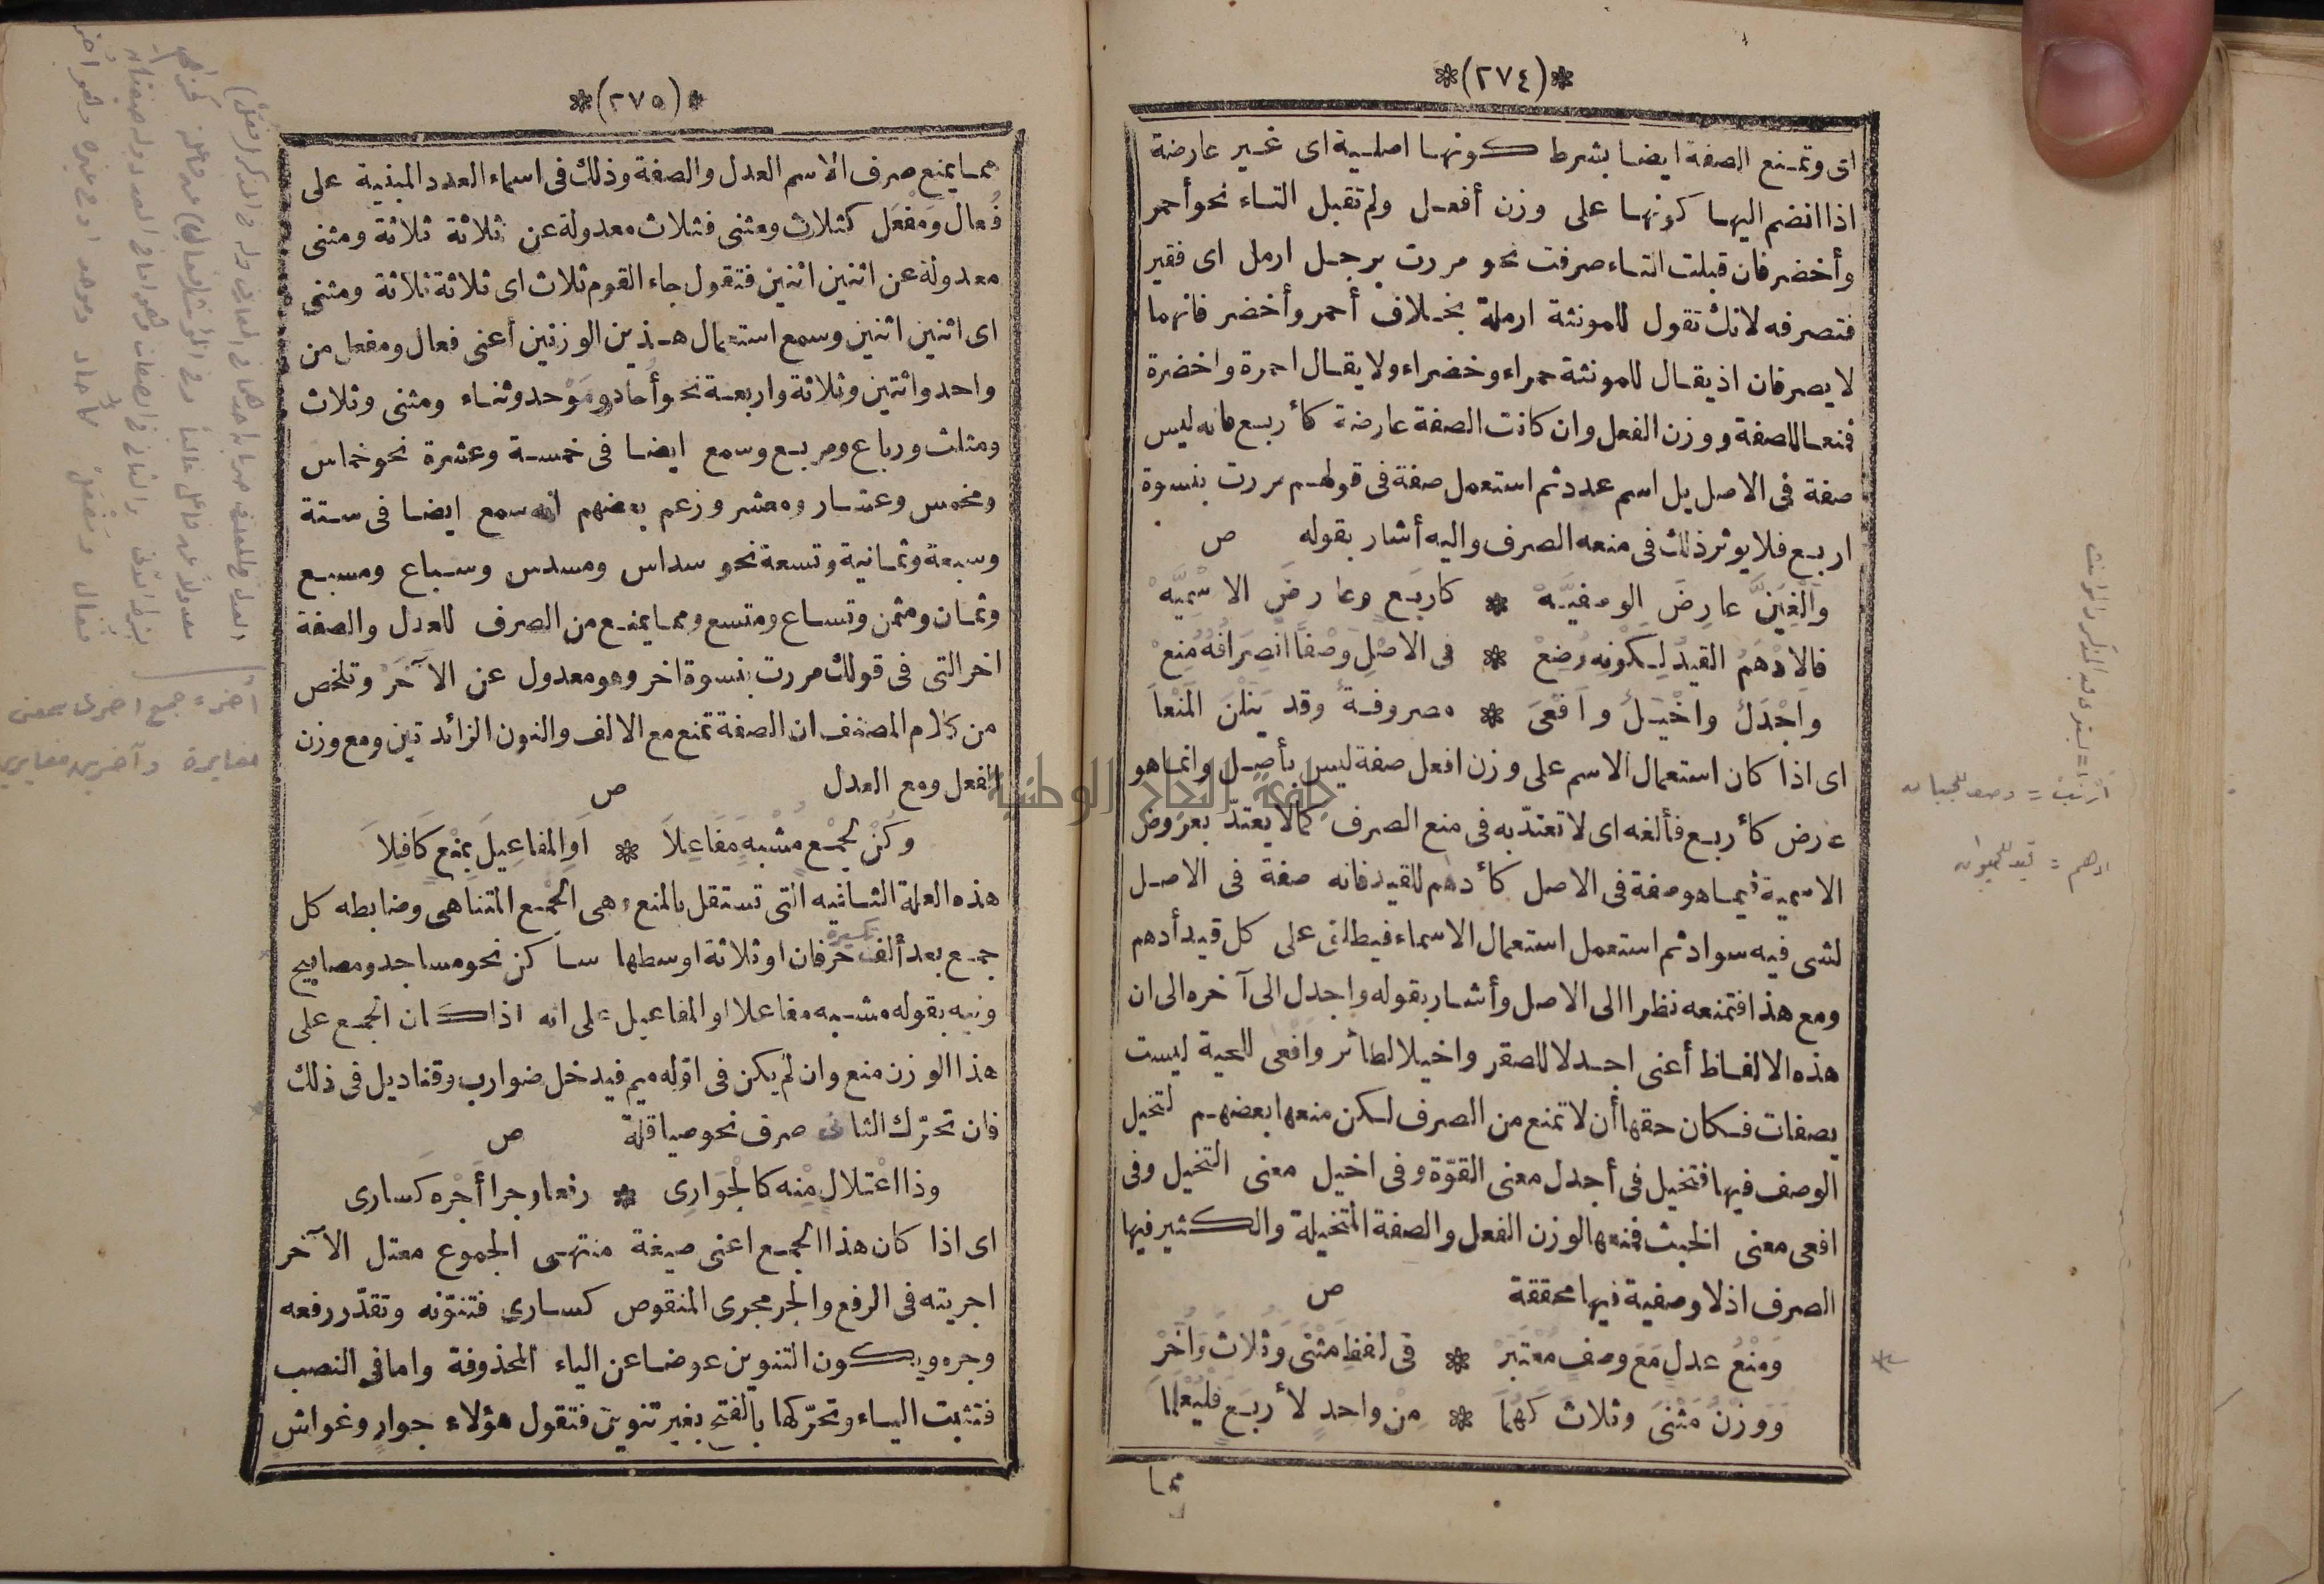 *(٢٧٤)*
اى وتمنع الصفة ايضا بشرط كونها اصلية اى غير عارضة
اذا انضم اليها كونها على وزن أفعل ولم تقبل التاء نحو أحمر
وأخضر فان قبلت التاء صرفت نحو مررت برجل ارمل اى فقير
فتصرفه لانك تقول للمونثة ارملة بخلاف أحمر وأخضر فانهما
لا يصرفان اذ يقال للمونثة حمراء وخضراء ولا يقال احمرة واخضرة
فمنعا للصفة ووزن الفعل وان كانت الصفة عارضة كأربع فانه ليس
صفة فى الاصل بل اسم عدد ثم استعمل صفة فى قولهم مررت بنسوة
اربع فلا يوثر ذلك فى منعه الصرف واليه أشار بقوله ص
وَأَلْغِيَنَّ عارِضَ الوصفيَّهْ * كاربَعٍ وعارضَ الاسْمِيَّهْ
فالادْهَمُ القيدُ لِكَوْنِهِ وُضِعْ * فى الاصْلِ وَصْفًا انْصِرَافُهُ مُنِعْ
وأجْدَلٌ واخْيَلٌ وأفْعَى * مصروفةٌ وقد يَنَلْنَ المَنْعاَ
اى اذا كان استعمال الاسم على وزن افعل صفة ليس بأصل وانما هو
عارض كأربع فألغه اى لا تعتدّ به فى منع الصرف كمالا يعتدّ بعروض
الاسمية فيما هو صفة فى الاصل كأدهم للقيد فانه صفة فى الاصل
لشى فيه سواد ثم استعمل استعمال الاسماء فيطلق على كل قيد أدهم
ومع هذا فتمنعه نظرا الى الاصل وأشار بقوله واجدل الى آخره الى ان
هذه الالفاظ أعنى اجدلا للصقر واخيلا لطائر وافعى للحية ليست
بصفات فكان حقها أن لا تمنع من الصرف لكن منعها بعضهم لتخيل
الوصف فيها فتخيل فى أجدل معنى القوّة وفى اخيل معنى التخيل وفى
افعى معنى الخبث فمنعها لوزن الفعل والصفة المتخيلة والكثير فيها
الصرف اذ لا وصفية فيها محققة ص
وَمَنْعُ عدلٍ مَعَ وصفٍ مُعْتَبَرْ * فى لفظِ مَثْنَى وَثُلاثَ وَأُخَرْ
وَوَزْنُ مَثْنَى وثلاثَ كَهُمَا * مِنْ واحدٍ لأربَعٍ فليُعْلَما
مما
ارنب = وصف للجبان
ادهم = قيد للحيوان
*(٢٧٥)*
مما يمنع صرف الاسم العدل والصفة وذلك فى اسماء العدد المبنية على
فُعال وَمَفْعَل كثلاث ومثنى فثلاث معدولة عن ثلاثة ثلاثة ومثنى
معدولة عن اثنين اثنين فتقول جاء القوم ثلاث اى ثلاثة ثلاثة ومثنى
اى اثنين اثنين وسمع استعمال هذين الوزنين أعنى فعال ومفعل من
واحد واثنين وثلاثة واربعة نحو أُحاد ومَوْحد وثناء ومثنى وثلاث
ومثلث ورباع ومربع وسمع ايضا فى خمسة وعشرة نحو خماس
ومخمس وعشار ومعشر وزعم بعضهم انه سمع ايضا فى ستة
وسبعة وثمانية وتسعة نحو سداس ومسدس وسباع ومسبع
وثمان ومثمن وتساع ومتسع ومما يمنع من الصرف للعدل والصفة
اخر التى فى قولك مررت بنسوة اخر وهو معدول عن الآخَر وتلخص
من كلام المصنف ان الصفة تمنع مع الالف والنون الزائدتين ومع وزن
الفعل ومع العدل ص
وكُنْ لجمْعٍ مُشْبِهٍ مَفَاعِلاَ * أوِ المَفَاعِيلَ بِمَنْعٍ كَافِلاَ
هذه العلة الثانية التى تستقل بالمنع وهى الجمع المتناهى وضابطه كل
جمع بعد ألف تكسيره حرفان او ثلاثة اوسطها ساكن نحو مساجد ومصابيح
ونبه بقوله مشبه مفاعلا او المفاعيل على انه اذا كان الجمع على
هذا الوزن منع وان لم يكن فى اوّله ميم فيدخل ضوارب وقناديل فى ذلك
فان تحرّك الثانى صرف نحو صياقلة ص
وذا اعْتلالٍ مِنْه كالجَوَارِى * رفعا وجرا أَجْرِه كَسارى
اى اذا كان هذا الجمع اعنى صيغة منتهى الجموع معتل الآخر
اجريته فى الرفع والجر مجرى المنقوص كسارى فتنوّنه وتقدّر رفعه
وجره ويكون التنوين عوضا عن الياء المحذوفة واما فى النصب
فتثبت الياء وتحرّكها بالفتح بغير تنوين فتقول هؤلاء جوارٍ وغواشٍ
أخر = جمع اخرى بمعنى
مغايرة وآخرين مغايرين
جامعة النجاح الوطنية